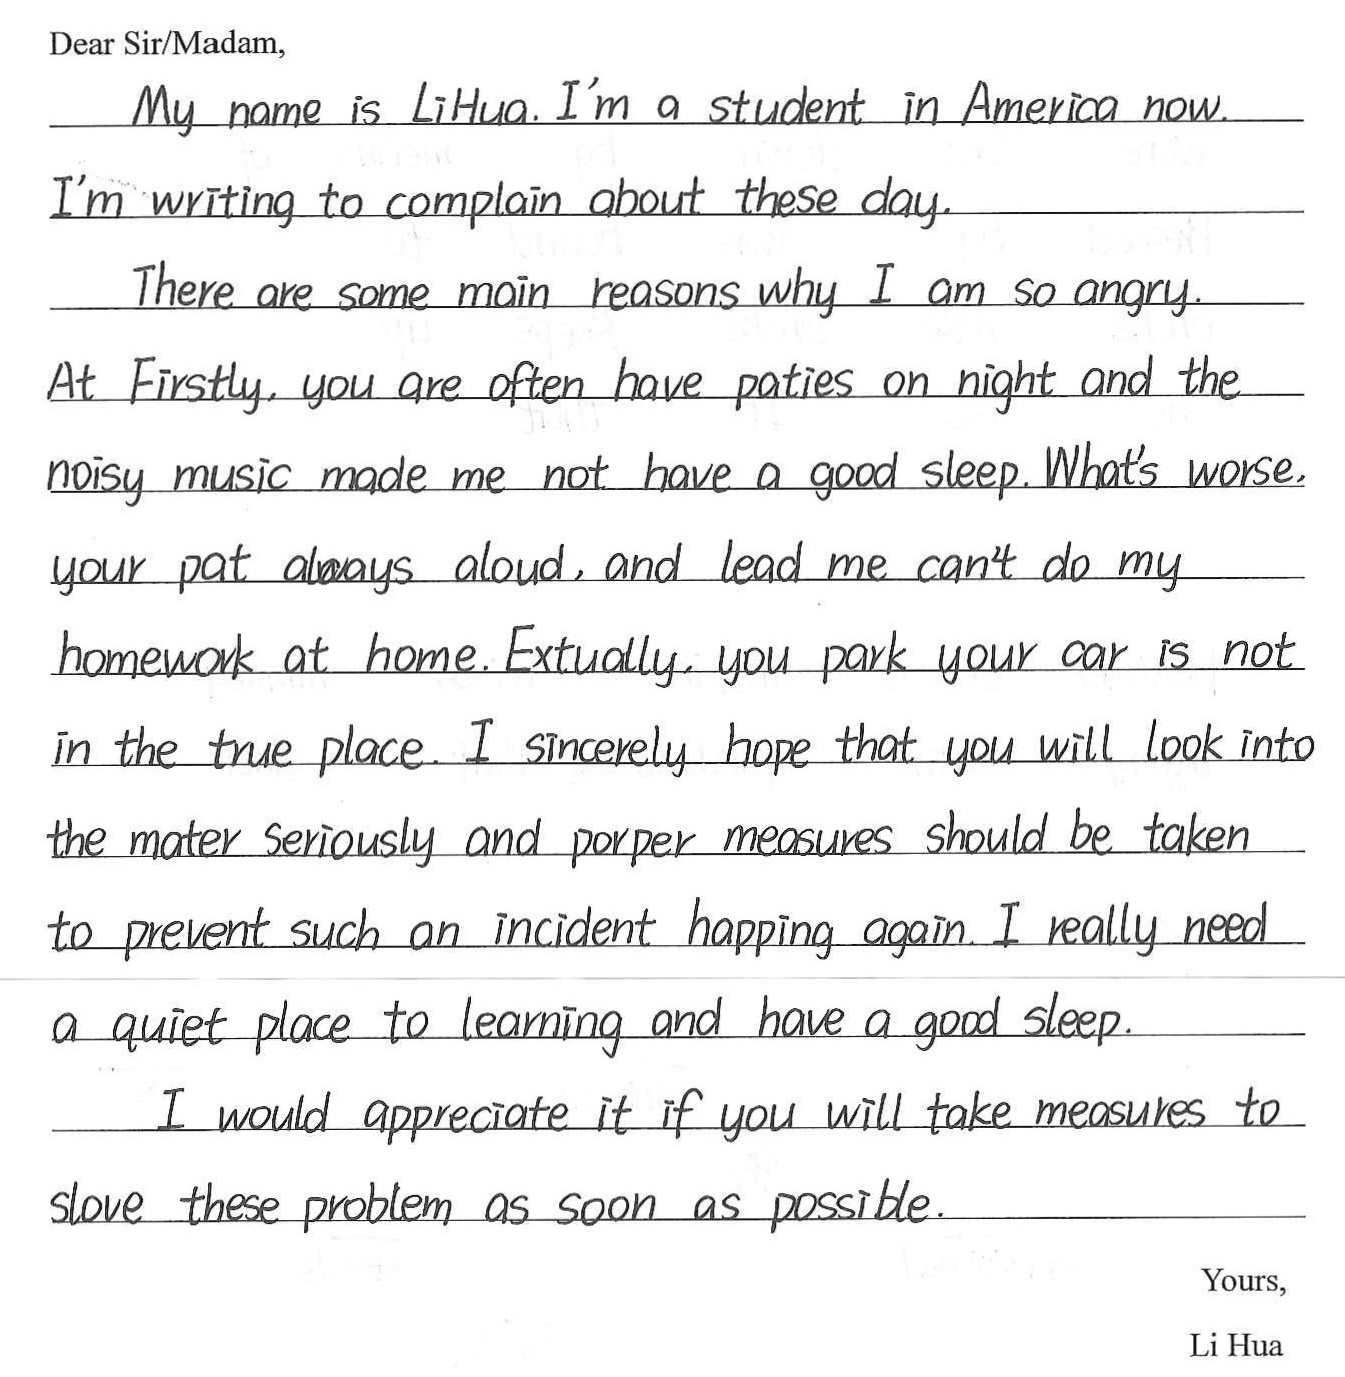 Dear Sir/Madam,
My name is LiHua. I'm a student in America now.
I'm writing to complain about these day.
There are some main reasons why I am so angry.
At Firstly, you are often have paties on night and the
noisy music made me not have a good sleep. What's worse,
your pat always aloud, and lead me can't do my
homework at home. Extually, you park your car is not
in the true place. I sincerely hope that you will look into
the mater seriously and porper measures should be taken
to prevent such an incident happing again. I really need
a quiet place to learning and have a good sleep.
I would appreciate it if you will take measures to
slove these problem as soon as possible.
Yours,
Li Hua